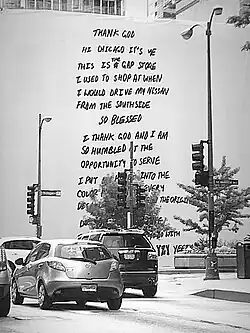 THANK GOD
HI CHICAGO IT'S YE
THIS IS THE GAP STORE
I USED TO SHOP AT WHEN
I WOULD DRIVE MY NISSAN
FROM THE SOUTHSIDE
SO BLESSED
I THANK GOD AND I AM
SO HUMBLED AT THE
OPPORTUNITY TO SERVE
I PUT INTO THE
COLOR EVERY
THE ORIGIN
DO WITH
YZY YEEZY